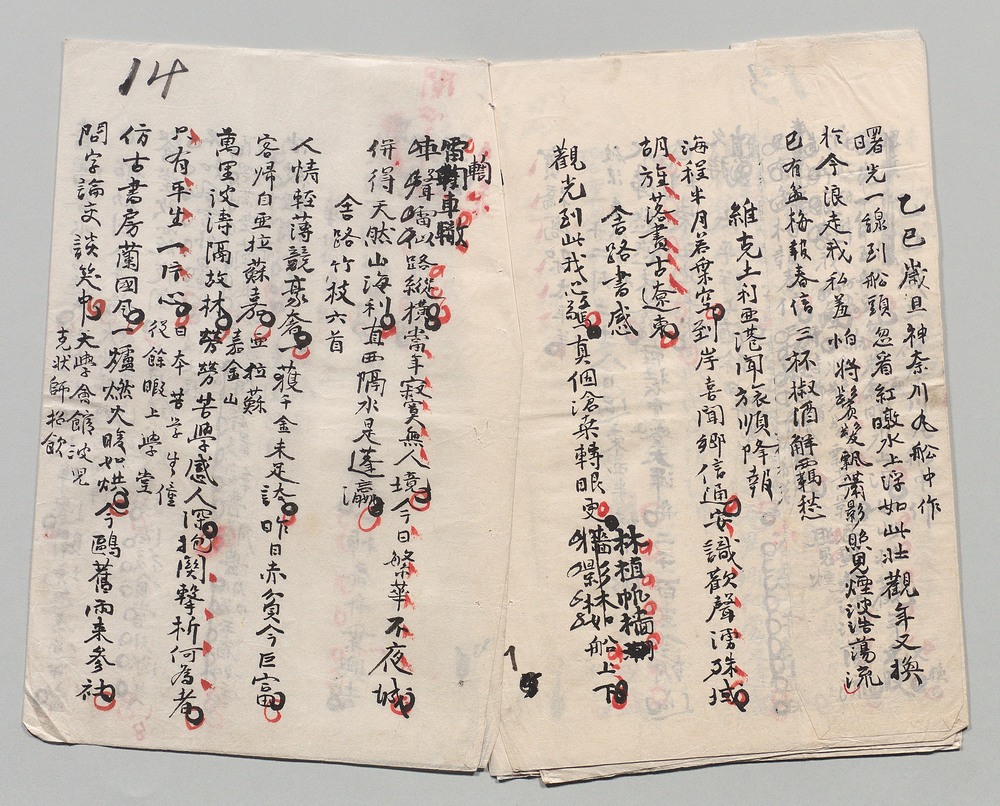 乙巳歲旦神奈川丸船中作
曙先一線到船頭忽看紅暾水上浮如此壯觀年又換
日
於今浪走我私羞怕將鬢髮飄蕭影照見煙波浩蕩流
已有盆梅報春信三杯椒酒解羈愁
維克土利亞港聞旅順降報
海程半月若乘空到岸喜聞鄉信通安識歡聲湧殊域
胡旌落盡古遼東
舍路書感
觀光到此我心驚真個滄桑轉眼更
林植帆檣
船上下
雷轟車轍
車聲路縱橫當年寂寞無人境今日繁華不夜城
併得天然山海利直西隔水是蓬瀛
舍路竹枝六首
人情輕薄競豪奢一獲千金未足誇昨日赤貧今巨富
客帰自亞拉蘇嘉
亞拉蘇
嘉金山
萬里波濤隔故林勞勞苦學感人深抱関擊柝何為者
只有平生一片心
日本苦學生僮
役餘暇上學堂
仿古書房蘭國風一爐燃火暖如烘今鷗舊雨来參社
問字論文談笑中
大學會館波兒
克状師招飲
14